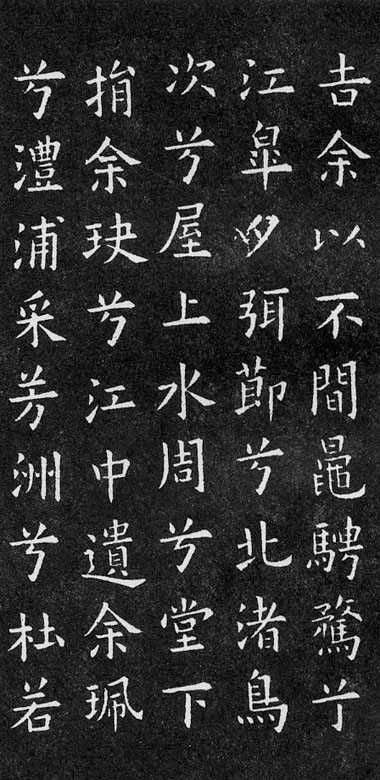 告余以不間鼂騁騖兮
江皐夕弭節兮北渚鳥
次兮屋上水周兮堂下
捐余玦兮江中遺余珮
兮澧浦采芳洲兮杜若